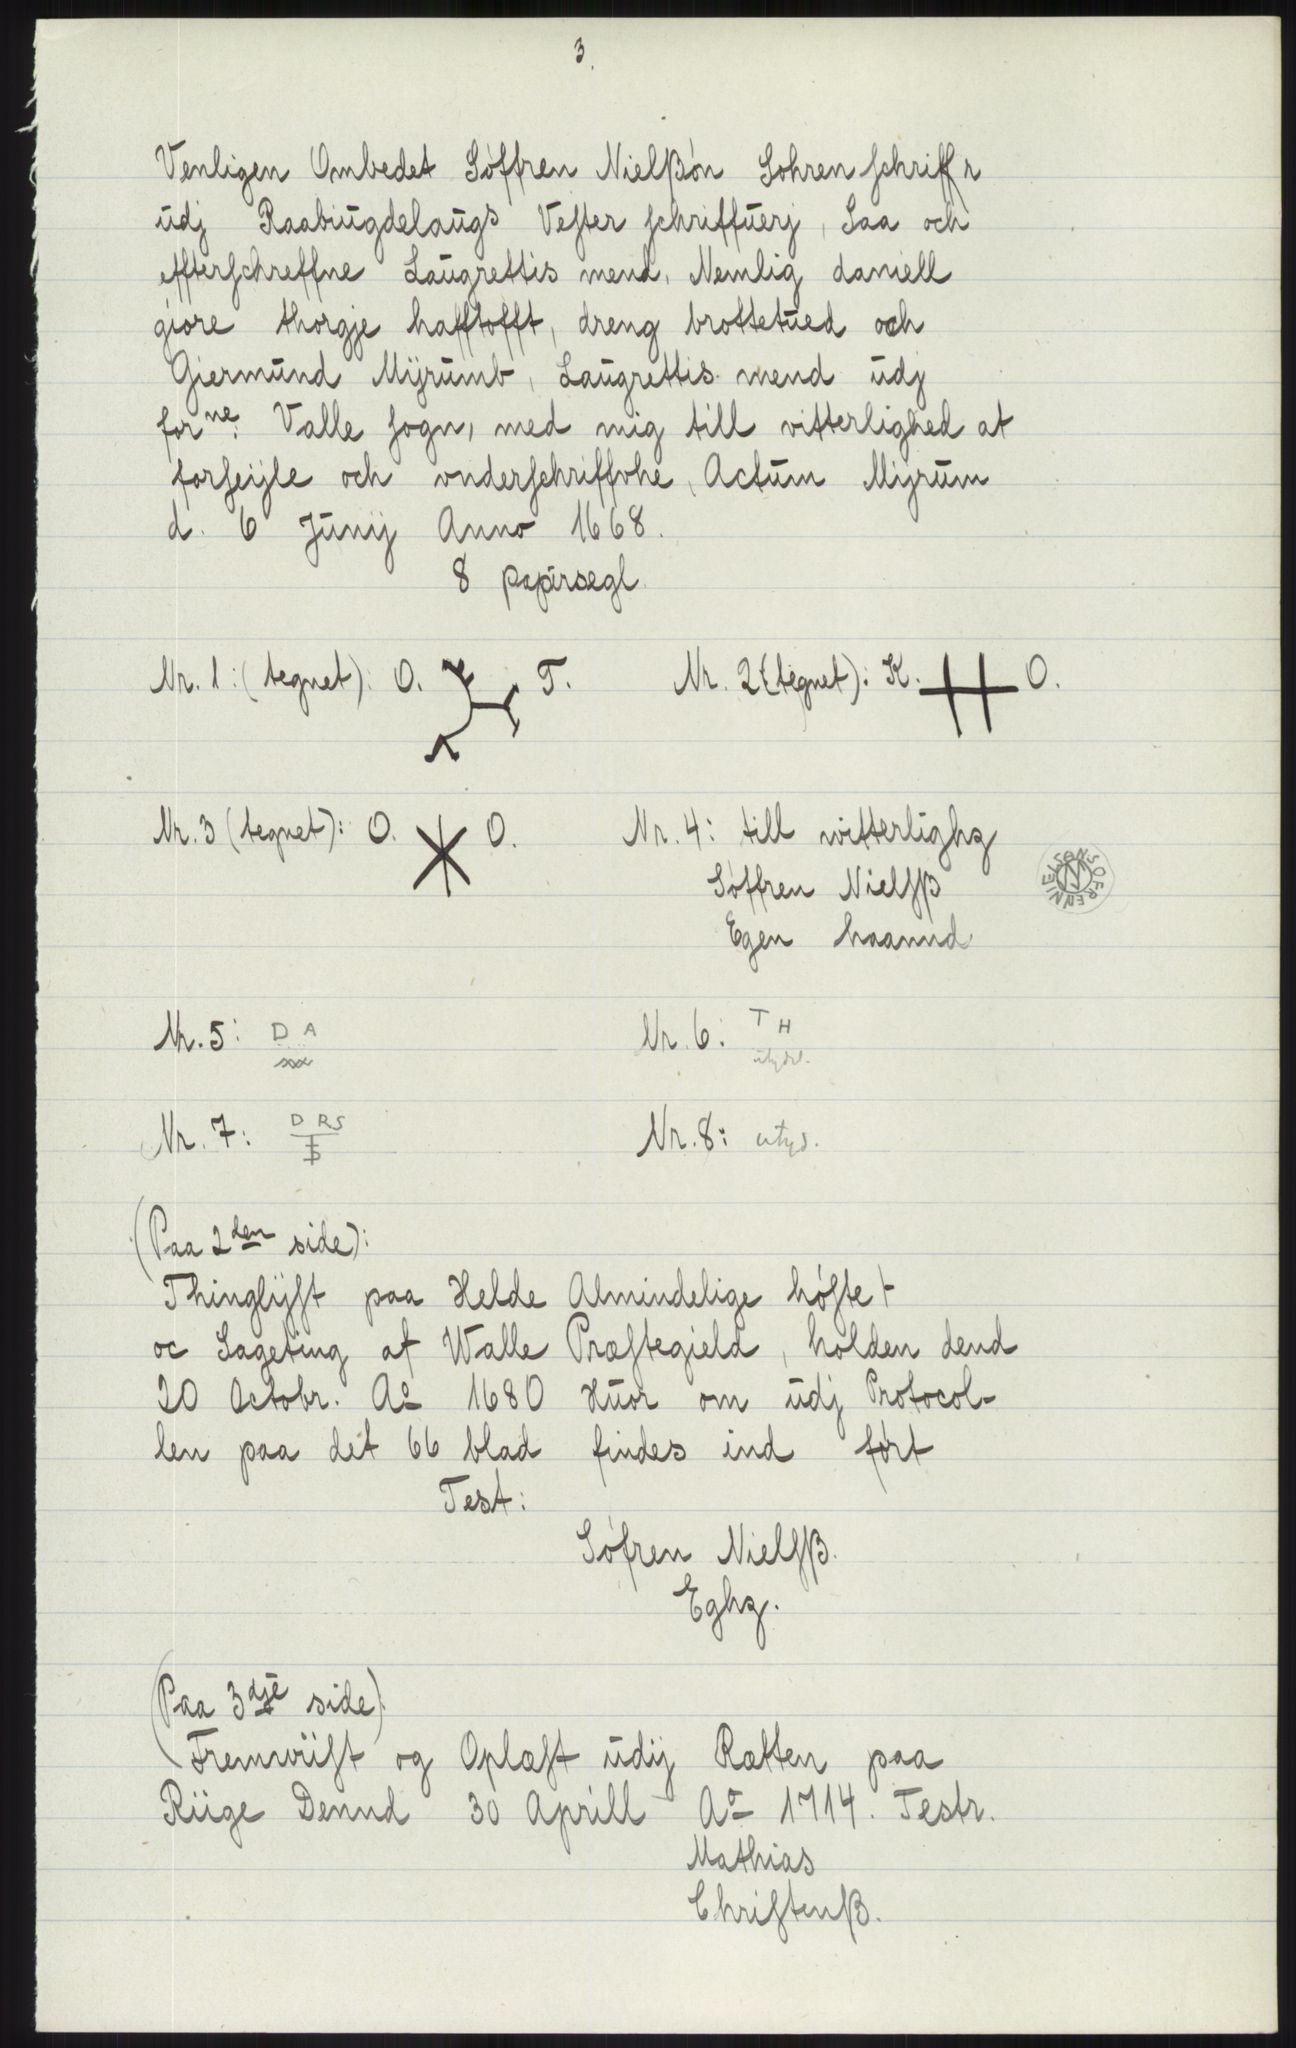 3.
Venligen Ombedet Söffren Nielßön Sohren schriffr
udj Raabiugdelaugs Vester schriffuerj, Saa och
effterschreffne Laugrettis mend, Nemlig daniell
giøre thorgje hafftofft, dreng brottetued och
Giermund Mijrumb, Laugrettis mend udj
forne: Valle sogn, med mig till vitterlighed at
forseijle och vnderschriffvhe, Actum Mijrum
d. 6 Junij Anno 1668.
8 papirsegl.
Nr. 1: (tegnet): O. T. Nr. 2 (tegnet): K. O.
Nr. 3 (tegnet): O. O. Nr. 4: till witterlighz
Söffren Nielsß
Egen haannd
SØFREN NIELSØN
Nr. 5: D A Nr. 6: T H
utyd.
Nr. 7: D RS Nr. 8: utyd.
(Paa 2den side):
Thinglyst paa Helde Almindelige høste t
oc Sageting af Walle Præstegield, holden dend
20 Octobr. Ao 1680 Huor om udj Protocol-
len paa det 66 blad findes ind ført
Test:
Söfren Nielsß.
Eghz.
(Paa 3dje side)
Fremviist og Oplæst udij Rætten paa
Riige Dennd 30 Aprill Ao 1714. Testr.
Mathias
Christenß.